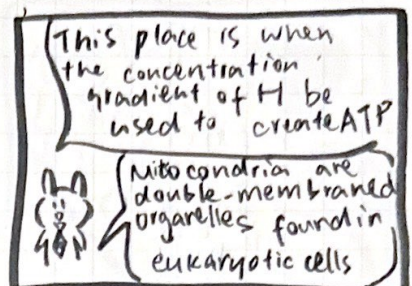 This place is when
the concentration
gradient of H be
used to create ATP
Mitocondria are
double-membraned
organelles found in
eukaryotic cells